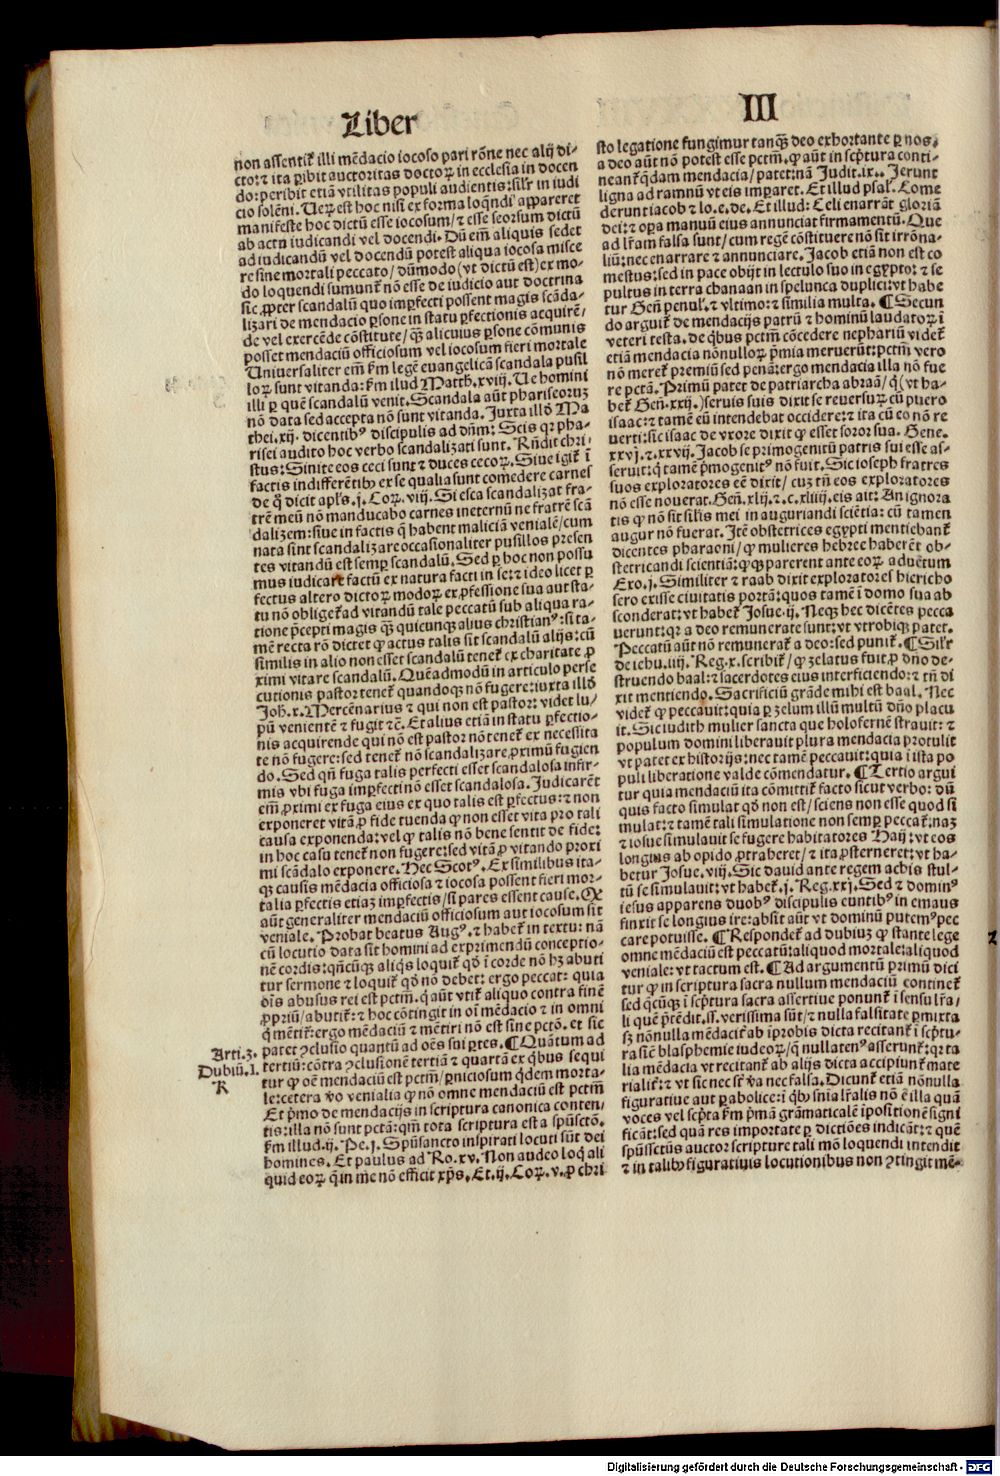 Liber
III
non assentiť illi mēdacio iocoso pari rōne nec alij di-
ctoꝝ: ⁊ ita ꝑibit auctoritas doctoꝝ in ecclesia in docen
do: peribit etiā vtilitas populi audientis: silr̄ in iudi
cio solēni. Ueꝝ est hoc nisi ex forma loq̄ndi appareret
manifeste hoc dictū esse iocosum/ ⁊ esse seorsum dictū
ab actu iudicandi vel docendi. Dū em̄ aliquis sedet
ad iudicandū vel docendū potest aliqua iocosa misce
re sine mortali peccato/ dūmodo (vt dictū est) ex mo-
do loquendi sumunť nō esse de iudicio aut doctrina
sic ꝓpter scandalū quo imꝑfecti possent magis scāda-
lizari de mendacio ꝑsone in statu ꝑfectionis acquirē/
de vel exercēde cōstitute/ q̄ꝫ alicuius ꝑsone cōmunis
posset mendaciū officiosum vel iocosum fieri mortale
Uniuersaliter em̄ ẜm legē euangelicā scandala pusil
loꝝ sunt vitanda: ẜm illud Matth. xviij. Ue homini
illi ꝑ quē scandalū venit. Scandala aūt phariseorꝫ
nō data sed accepta nō sunt vitanda. Juxta illd̄ Ma
thei. xij. dicentibꝰ discipulis ad dn̄m: Scis qꝛ pha-
risei audito hoc verbo scandalizati sunt. Rn̄dit chri-
stus: Sinite eos ceci sunt ⁊ duces cecoꝝ. Siue igiť ī
factis indifferētibꝰ ex se qualia sunt comedere carnes
de q̊ dicit apl̄s. j. Coꝝ. viij. Si esca scandalizat fra-
trē meū nō manducabo carnes ineternū ne fratrē scā
dalizem: siue in factis q̄ habent maliciā venialē/ cum
nata sint scandalizare occasionaliter pusillos presen
tes vitandū est semꝑ scandalū. Sed ꝑ hoc non possu
mus iudicare factū ex natura facti in se: ⁊ ideo licet ꝑ
fectus altero dictoꝝ modoꝝ ex ꝓfessione sua aut sta-
tu nō obligeť ad vitandū tale peccatū sub aliqua ra-
tione p̄cepti magis q̄ꝫ quicunqꝫ alius christianꝰ: si ta-
mē recta rō dictet ꝙ actus talis sit scandalū alijs: cū
similis in alio non esset scandalū teneť ex charitate ꝓ
ximi vitare scandalū. Quēadmodū in articulo perse
cutionis pastor teneť quandoqꝫ nō fugere: iuxta illd̄
Joh̄. x. Mercēnarius ⁊ qui non est pastor: videt lu/
pū venientē ⁊ fugit ⁊c̄. Et alius etiā in statu ꝑfectio-
nis acquirende qui nō est pastor nō teneť ex necessita
te nō fugere: sed teneť nō scandalizare ꝓximū fugien
do. Sed qn̄ fuga talis perfecti esset scandalosa infir-
mis vbi fuga imꝑfecti nō esset scandalosa. Judicarēt
em̄ ꝓximi ex fuga eius ex quo talis est ꝑfectus: ⁊ non
exponeret vitā ꝓ fide tuenda ꝙ non esset vita pro tali
causa exponenda: vel ꝙ talis nō bene sentit de fide:
in hoc casu teneť non fugere: sed vitā ꝓ vitando proxi
mi scādalo exponere. Hec Scotꝰ. Ex similibus ita-
qꝫ causis mēdacia officiosa ⁊ iocosa possent fieri mor-
talia ꝑfectis etiaꝫ imꝑfectis/ si pares essent cause. Qꝫ
aūt generaliter mendaciū officiosum aut iocosum sit
veniale. Probat beatus Augꝰ. ⁊ habeť in textu: nā
cū locutio data sit homini ad exprimendū conceptio-
nē cordis: qn̄cūqꝫ aliq̄s loquiť qd̄ ī corde nō hꝫ abuti
tur sermone ⁊ loquiť qd̄ nō debet: ergo peccat: quia
oīs abusus rei est pctm̄. q̄ aūt vtiť aliquo contra finē
ꝓpriū/ abutiť: ⁊ hoc cōtingit in oī mēdacio ⁊ in omni
q̄ mētiť: ergo mēdaciū ⁊ mētiri nō est sine pctō. et sic
patet ꝯclusio quantū ad oēs sui ꝑtes. ¶ Quātum ad
Arti. 3.
tertiū: cōtra ꝯclusionē tertiā ⁊ quartā ex q̇bus sequi
Dubiū. 1.
tur ꝙ oē mendaciū est pctm̄/ ꝑniciosum q̇dem morta-
R
le: cetera ṽo venialia ꝙ nō omne mendaciū est pctm̄
Et p̄mo de mendacijs in scriptura canonica conten/
tis: illa nō sunt pctā: qm̄ tota scriptura est a spūsctō.
ẜm illud. ij. Pe. j. Spūsancto inspirati locuti sūt dei
homines. Et paulus ad Ro. xv. Non audeo loq̄ ali
quid eoꝝ q̄ in me nō efficit xp̄s. Et. ij. Coꝝ. v. ꝓ chri
sto legatione fungimur tanq̄ꝫ deo exhortante ꝑ nos:
a deo aūt nō potest esse pctm̄. ꝙ aūt in scp̄tura conti-
neanť q̄dam mendacia/ patet: nā Judit. ix. Jerunt
ligna ad ramnū vt eis imꝑaret. Et illud psal̄. Come
derunt iacob ⁊ lo. e. de. Et illud: Celi enarrāt gloriā
dei: ⁊ oꝑa manuū eius annunciat firmamentū. Que
ad lr̄am falsa sunt/ cum regē cōstituere nō sit irrōna-
liū: nec enarrare ⁊ annunciare. Jacob etiā non est co
mestus: sed in pace obijt in lectulo suo in egypto: ⁊ se
pultus in terra chanaan in spelunca duplici: vt habe
tur Gen̄. penul̄. ⁊ vltimo: ⁊ similia multa. ¶ Secun
do arguiť de mendacijs patrū ⁊ hominū laudatoꝝ ī
veteri testa. de q̇bus pctm̄ cōcedere nephariū videť
etiā mendacia nōnulloꝝ p̄mia meruerūt: pctm̄ vero
nō mereť premiū sed penā: ergo mendacia illa nō fue
re pctā. Primū patet de patriarcha abraā/ q̇ (vt ha-
beť Gen̄. xxij.) seruis suis dixit se reuersuꝝ cū puero
isaac: ⁊ tamē eū intendebat occidere: ⁊ ita cū eo nō re
uerti: sic isaac de vxore dixit ꝙ esset soror sua. Gene.
xxvj. ⁊. xxvij. Jacob se primogenitū patris sui esse as-
seruit: q̇ tamē p̄mogenitꝰ nō fuit. Sic ioseph fratres
suos exploratores eē dixit/ cuꝫ tn̄ eos exploratores
nō esse nouerat. Gen̄. xlij. ⁊. c. xliiij. eis ait: An ignora
tis ꝙ nō sit sil̄is mei in auguriandi sciētia: cū tamen
augur nō fuerat. Itē obstetrices egypti mentiebanť
dicentes pharaoni/ ꝙ mulieres hebree haberēt ob-
stetricandi scientiā: ꝙqꝫ parerent ante eoꝝ aduētum
Exo. j. Similiter ⁊ raab dixit exploratores hiericho
sero exisse ciuitatis portā: quos tamē ī domo sua ab
sconderat: vt habeť Josue. ij. Neqꝫ hec dicētes pecca
uerunt: qꝛ a deo remunerate sunt: vt vtrobiqꝫ patet.
Peccatū aūt nō remunerať a deo: sed puniť. ¶ Sil̄r
de iehu. iiij. Reg. x. scribiť/ ꝙ zelatus fuit ꝓ dn̄o de-
struendo baal: ⁊ sacerdotes eius interficiendo: ⁊ tn̄ di
xit mentiendo. Sacrificiū grāde mihi est baal. Nec
videť ꝙ peccauit: quia ꝑ zelum illū multū dn̄o placu
it. Sic iudith mulier sancta que holofernē strauit: ⁊
populum domini liberauit plura mendacia protulit
vt patet ex historijs: nec tamē peccauit: quia ī ista po
puli liberatione valde cōmendatur. ¶ Tertio argui
tur quia mendaciū ita cōmittiť facto sicut verbo: dū
quis facto simulat qd̄ non est/ sciens non esse quod si
mulat: ⁊ tamē tali simulatione non semꝑ peccať: naꝫ
⁊ iosue simulauit se fugere habitatores Haij: vt eos
longius ab opido ꝓtraheret/ ⁊ ita ꝓsterneret: vt ha-
betur Josue. viij. Sic dauid ante regem achis stul-
tū se simulauit: vt habeť. j. Reg. xxj. Sed ⁊ dominꝰ
iesus apparens duobꝰ discipulis euntibꝰ in emaus
finxit se longius ire: absit aūt vt dominū putemꝰ pec
care potuisse. ¶ Respondeť ad dubiuꝫ ꝙ stante lege
omne mēdaciū est peccatū: aliquod mortale: aliquod
veniale: vt tactum est. ¶ Ad argumentū primū dici
tur ꝙ in scriptura sacra nullum mendaciū contineť
sed q̄cūqꝫ ī scp̄tura sacra assertiue ponunť ī sensu lr̄a/
li quē p̄tēdit. ss. verissima sūt/ ⁊ nulla falsitate ꝑmixta
sꝫ nōnulla mēdacia ab iprobis dicta recitanť ī scp̄tu-
ra siē blasphemie iudeoꝝ/ q̄ nullatenꝰ asserunť: qꝛ ta
lia mēdacia vt recitanť ab alijs dicta accipiunť mate
rialiť: ⁊ vt sic nec sē v̄a nec falsa. Dicunť etiā nōnulla
figuratiue aut parabolice: ī qbꝰ sn̄ia lr̄alis nō ē illa quā
voces vel scp̄ta ẜm p̄mā grāmaticalē ipositionē signi
ficāt: sed quā res importate ꝑ dictiōes indicāt: ⁊ quē
spūssctūs auctor scripture tali mō loquendi intendit
⁊ in talibꝫ figuratiuis locutionibus non ꝯtingit mē-
Digitalisierung gefördert durch die Deutsche Forschungsgemeinschaft - DFG